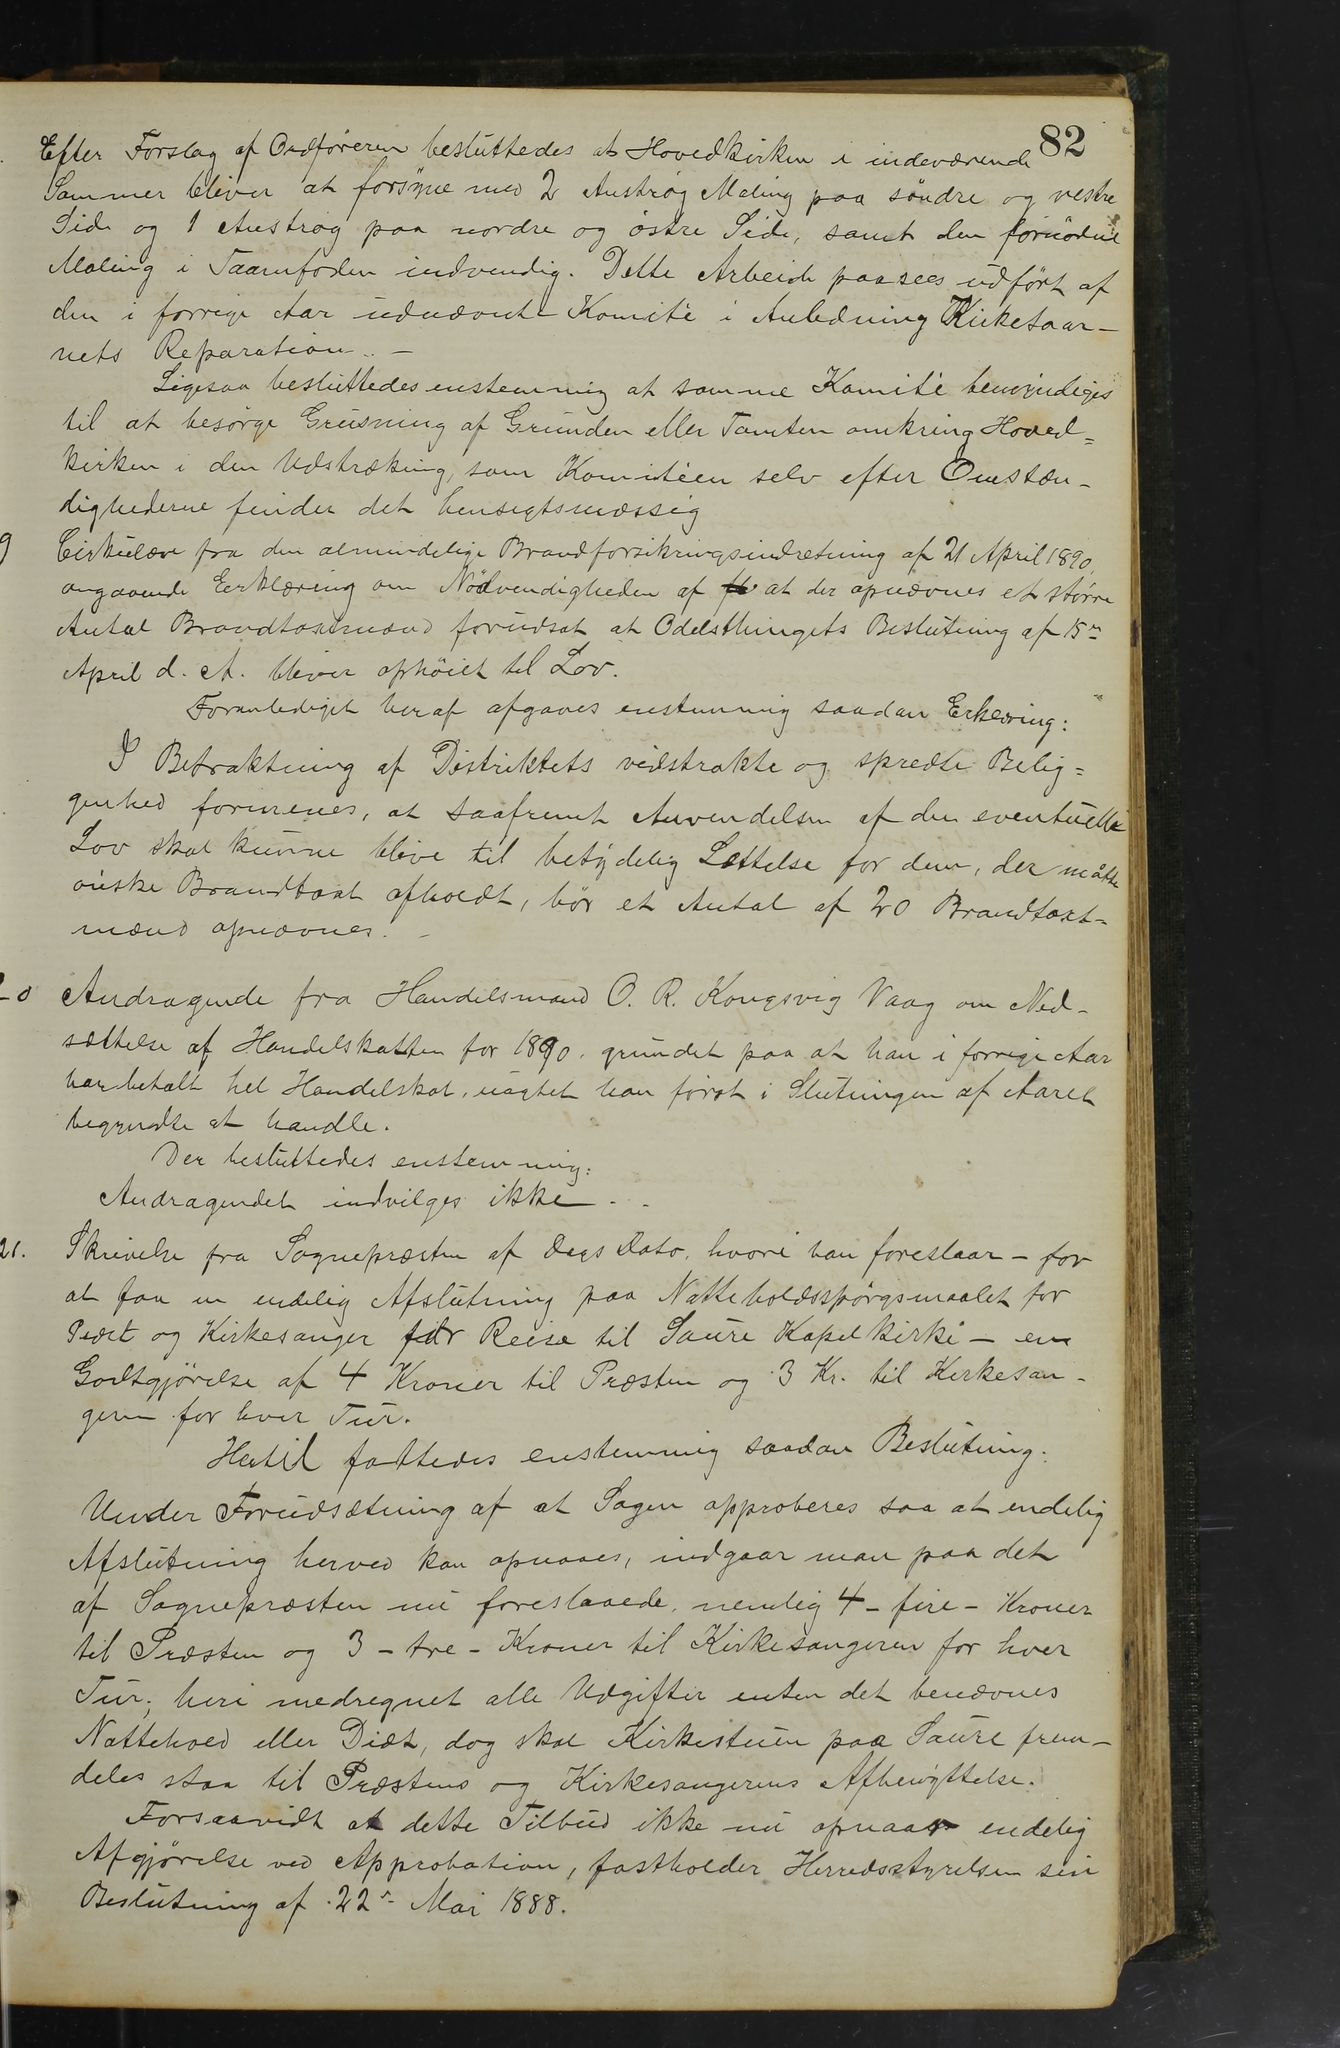 82
Efter Forslag af Ordföreren besluttedes at Hovedkirken i indeværende
Sommer bliver at forsÿne med 2 Anströg Maling paa söndre og vestre
Side og 1 Anströg paa nordre og östre Side, samt den fornödne
Maling i Taarnfoden indvendig. Dette Arbeide paasees udfört af
den i forrige Aar udnævnte Komité i Anledning Kirketaar-
nets Reparation. -
Ligesaa besluttedes enstemmig at samme Komité bemÿndiges
til at besörge Grusning af Grunden eller Tomten omkring Hoved=
kirken i den Udstrækning, som Komitéen selv efter Omstæn-
dighederne finder det hensigtsmæssig
9 Cirkulære fra den almindelige Brandforsikringsindretning af 21 April 1890,
angaaende Erklæring om Nödvendigheden af at der opnævnes et större
Antal Brandtaxtmænd forudsat at Odelsthingets Beslutning af 15de
April d. A. bliver ophöiet til Lov.
Foranlediget heraf afgaves enstemmig saadan Erklæring:
I Betraktning af Distriktets vidstrakte og spredte Belig=
genhed formenes, at saafremt Anvendelsen af den eventuelle
Lov skal kunne blive til betÿdelig Lettelse for dem, der måtte
önske Brandtaxt afholdt, bör et Antal af 20 Brandtaxt-
mænd opnævnes. -
20 Andragende fra Handelsmand O. R. Kongsvig Vaag om Ned-
sættelse af Handelskatten for 1890, grundet paa at han i forrige Aar
har betalt hel Handelskat, uagtet han först i Slutningen af Aaret
begyndte at handle.
Der besluttedes enstemmig:
Andragendet indvilges ikke -.
21. Skrivelse fra Sognepræsten af Dags Dato, hvori han foreslaar - for
at faa en endelig Afslutning paa Natteholdsspörgsmaalet for
Præst og Kirkesanger for Reise til Saure Kapelkirke - en
Godtgjörelse af 4 Kroner til Præsten og 3 Kr. til Kirkesan-
geren for hver Tur.
Hertil fattedes enstemmig saadan Beslutning:
Under Forudsætning af at Sagen approberes saa at endelig
Afslutning herved kan opnaaes, indgaar man paa det
af Sognepræsten nu foreslaaede, nemlig 4 - fire - Kroner
til Præsten og 3 - tre - Kroner til Kirkesangeren for hver
Tur, heri medregnet alle Udgifter enten det benævnes
Nattehold eller Diæt, dog skal Kirkestuen paa Saure frem-
deles staa til Præstens og Kirkesangerens Afbenÿttelse.
Forsaavidt at dette Tilbud ikke nu opnaar endelig
Afgjörelse ved Approbation, fastholder Herredsstyrelsen sin
Beslutning af 22de Mai 1888.